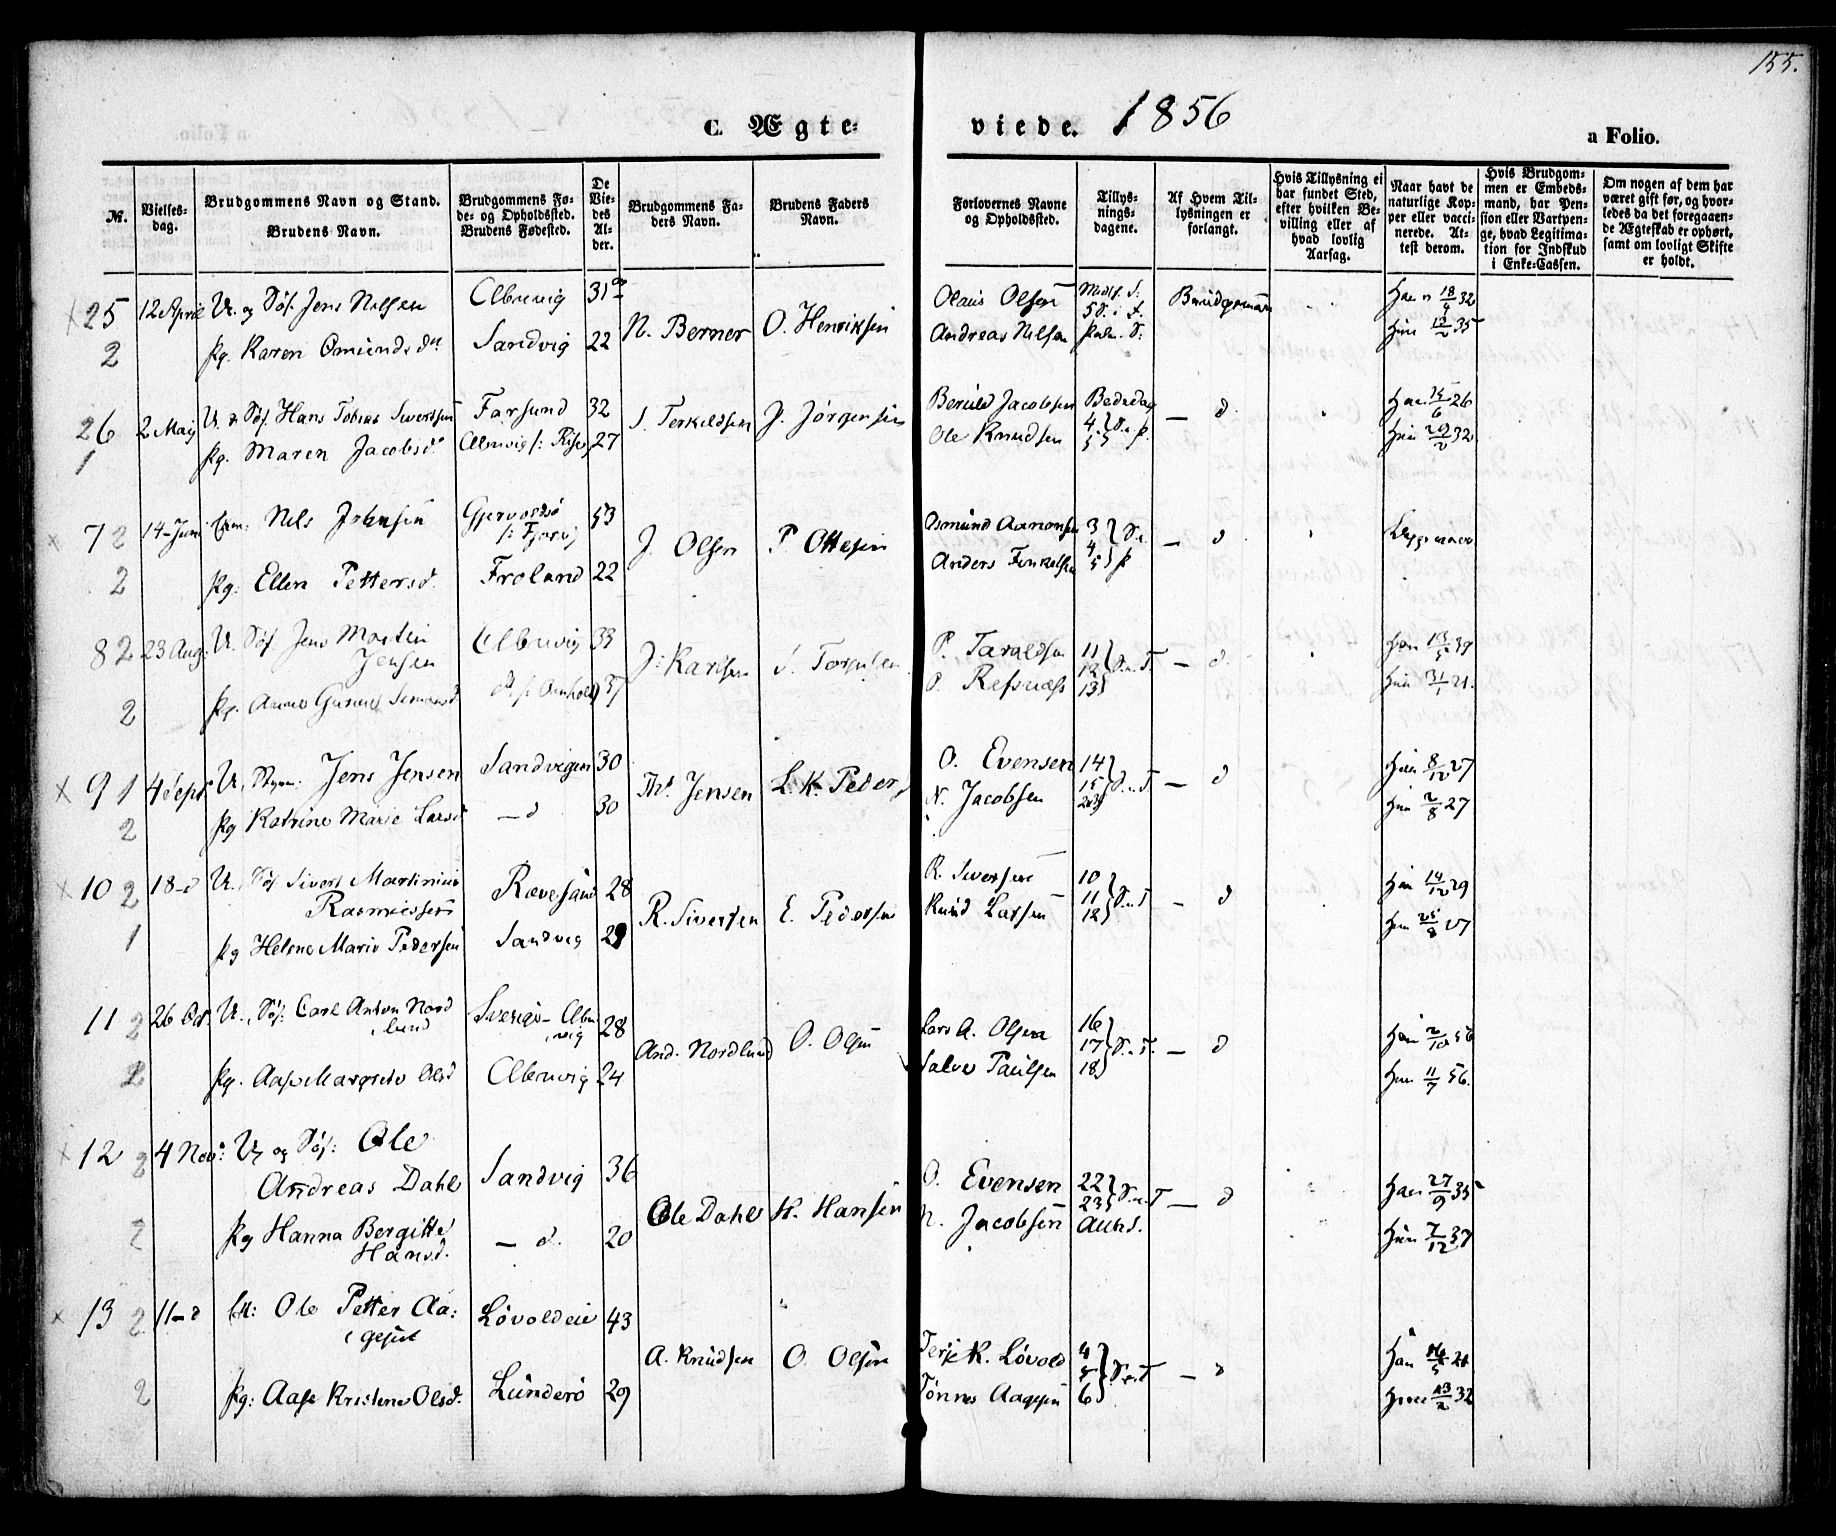 155.
C. Ægte-
viede. 1856
a Folio.
№.
Vielses-
dag.
Brudgommens Navn og Stand.
Brudens Navn.
Brudgommens Fø-
de- og Opholdssted.
Brudens Fødested.
De
Vie-
des
Al-
der.
Brudgommens Fa-
ders Navn.
Brudens Faders
Navn.
Forlovernes Navne
og Opholdssted.
Tillys-
nings-
dagene.
Af Hvem Til-
lysningen er
forlangt.
Hvis Tillysning ei
har fundet Sted,
efter hvilken Be-
villing eller af
hvad lovlig
Aarsag.
Naar havt de
naturlige Kop-
per eller vacci-
nerede. At-
test derom.
Hvis Brudgom-
men er Embeds-
mand, har Pen-
sion eller Vartpen-
ge, hvad Legitima-
tion for Indskud
i Enke-Cassen.
Om nogen af dem har
været gift før, og hvor-
ledes da det foregaaen-
de Ægteskab er ophørt,
samt om lovligt Skifte
er holdt.
25 12 April U. og Søf. Jens Nilsen Albuvig 31
N. Berner O. Henriksen
Olaus Olsen
Andreas Nilsen
Brudgommen
Han 18/4 32
2 Pg. Karen Omundsdtr Sandvig 22
Hun 12/2 35
26 2 Maij U. & Søf. Hans Tobias Sivertsen Farsund 32
S. Terkildsen J. Jørgensen
Beruld Jacobsen Bededag
Ole Knudsen 4. 5 S. e. P.
— d
Han 14/6 26
1 Pg. Maren Jacobsd. Albuvig /: Risør 27
Hun 29/2 32
7 2 14 Juni Enkm: Nils Johnsen Gjervoldsø 53
J. Olsen P. Ottesen
Osmund Aanonsen 3 4 5
Anders Terkelsen
— d
2 Pg: Ellen Pettersd. Froland 22
8 2 23 Aug. U. Søf. Jens Martin
Jensen
Albuvig 33
J. Karlsen
P. Taraldsen 11 12 13 S. e. T.
P. Refsnæs
— d
Han 13/5 39
2 Pg. Anne Gurine 37
Hun 31/1 21.
9 1 4 Sept. U. Jens Jensen Sandvigen 30
Ths. Jensen L. K. Peder
O. Evensen 14 15 S. e. T.
N. Jacobsen
— d
Han 8/12 27
2 Pg Katrine Marie Larsd — d 30
Hun 2/8 27
10 2 18 - d U. Søf. Sivert Martinius
Rasmussen
Rævesand 28
R. Sivertsen E. Pedersen
R. Sivertsen 10 11 12 S. e. T
Knud Larsen
— d
Han 14/12 29
1 Pg Helene Marie Pedersen Sandvig 29
Hun 25/8 27
11 2 26 Oct. U. Søf: Carl Anton Nord
lund
Sverige - Albu
vig
28
And. Nordlund O. Olsen
Lars A. Olsen 16 17 18 S. e. T.
Salve Paulsen
— d
Han 2/10 56
2 Pg. Aase Margrete Olsd Albuvig 24
Hun 11/7 56.
12 2 4 Nov: U. og Søf: Ole
Andreas Dahl Sandvig 36
Ole Dahl H. Hansen
O. Evensen 22 23 S. e. T
N. Jacobsen
— d
Han 27/9 35
2 Pg Hanna Bergitte
Hansd.
— d. 20
Hun 7/12 37
13 2 11 - d Ole Petter Aa-
gesen
Løvoldeie 43
A. Knudsen O. Olsen
Terje K. Løvold 4 5 6 S. e. T
Tønnes Aagesen
— d
Han 16/5 21
2 Pg: Aase Kristine Olsd. Lunderø 29
Hun 13/2 32